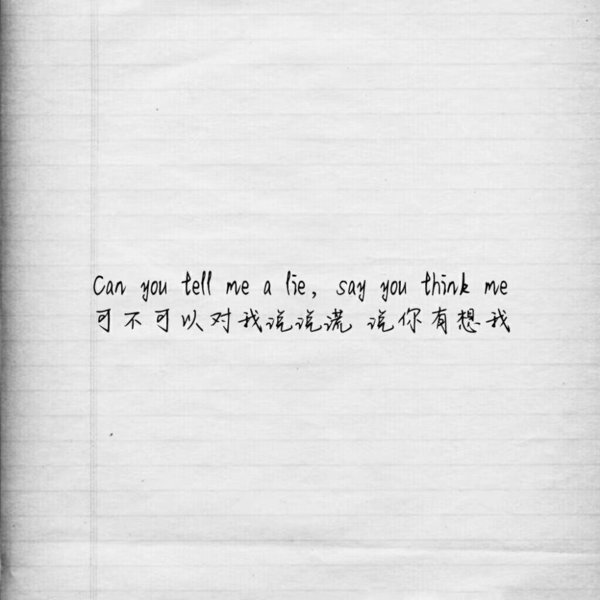 Can you tell me a lie, say you think me
可不可以对我说说谎 说你有想我